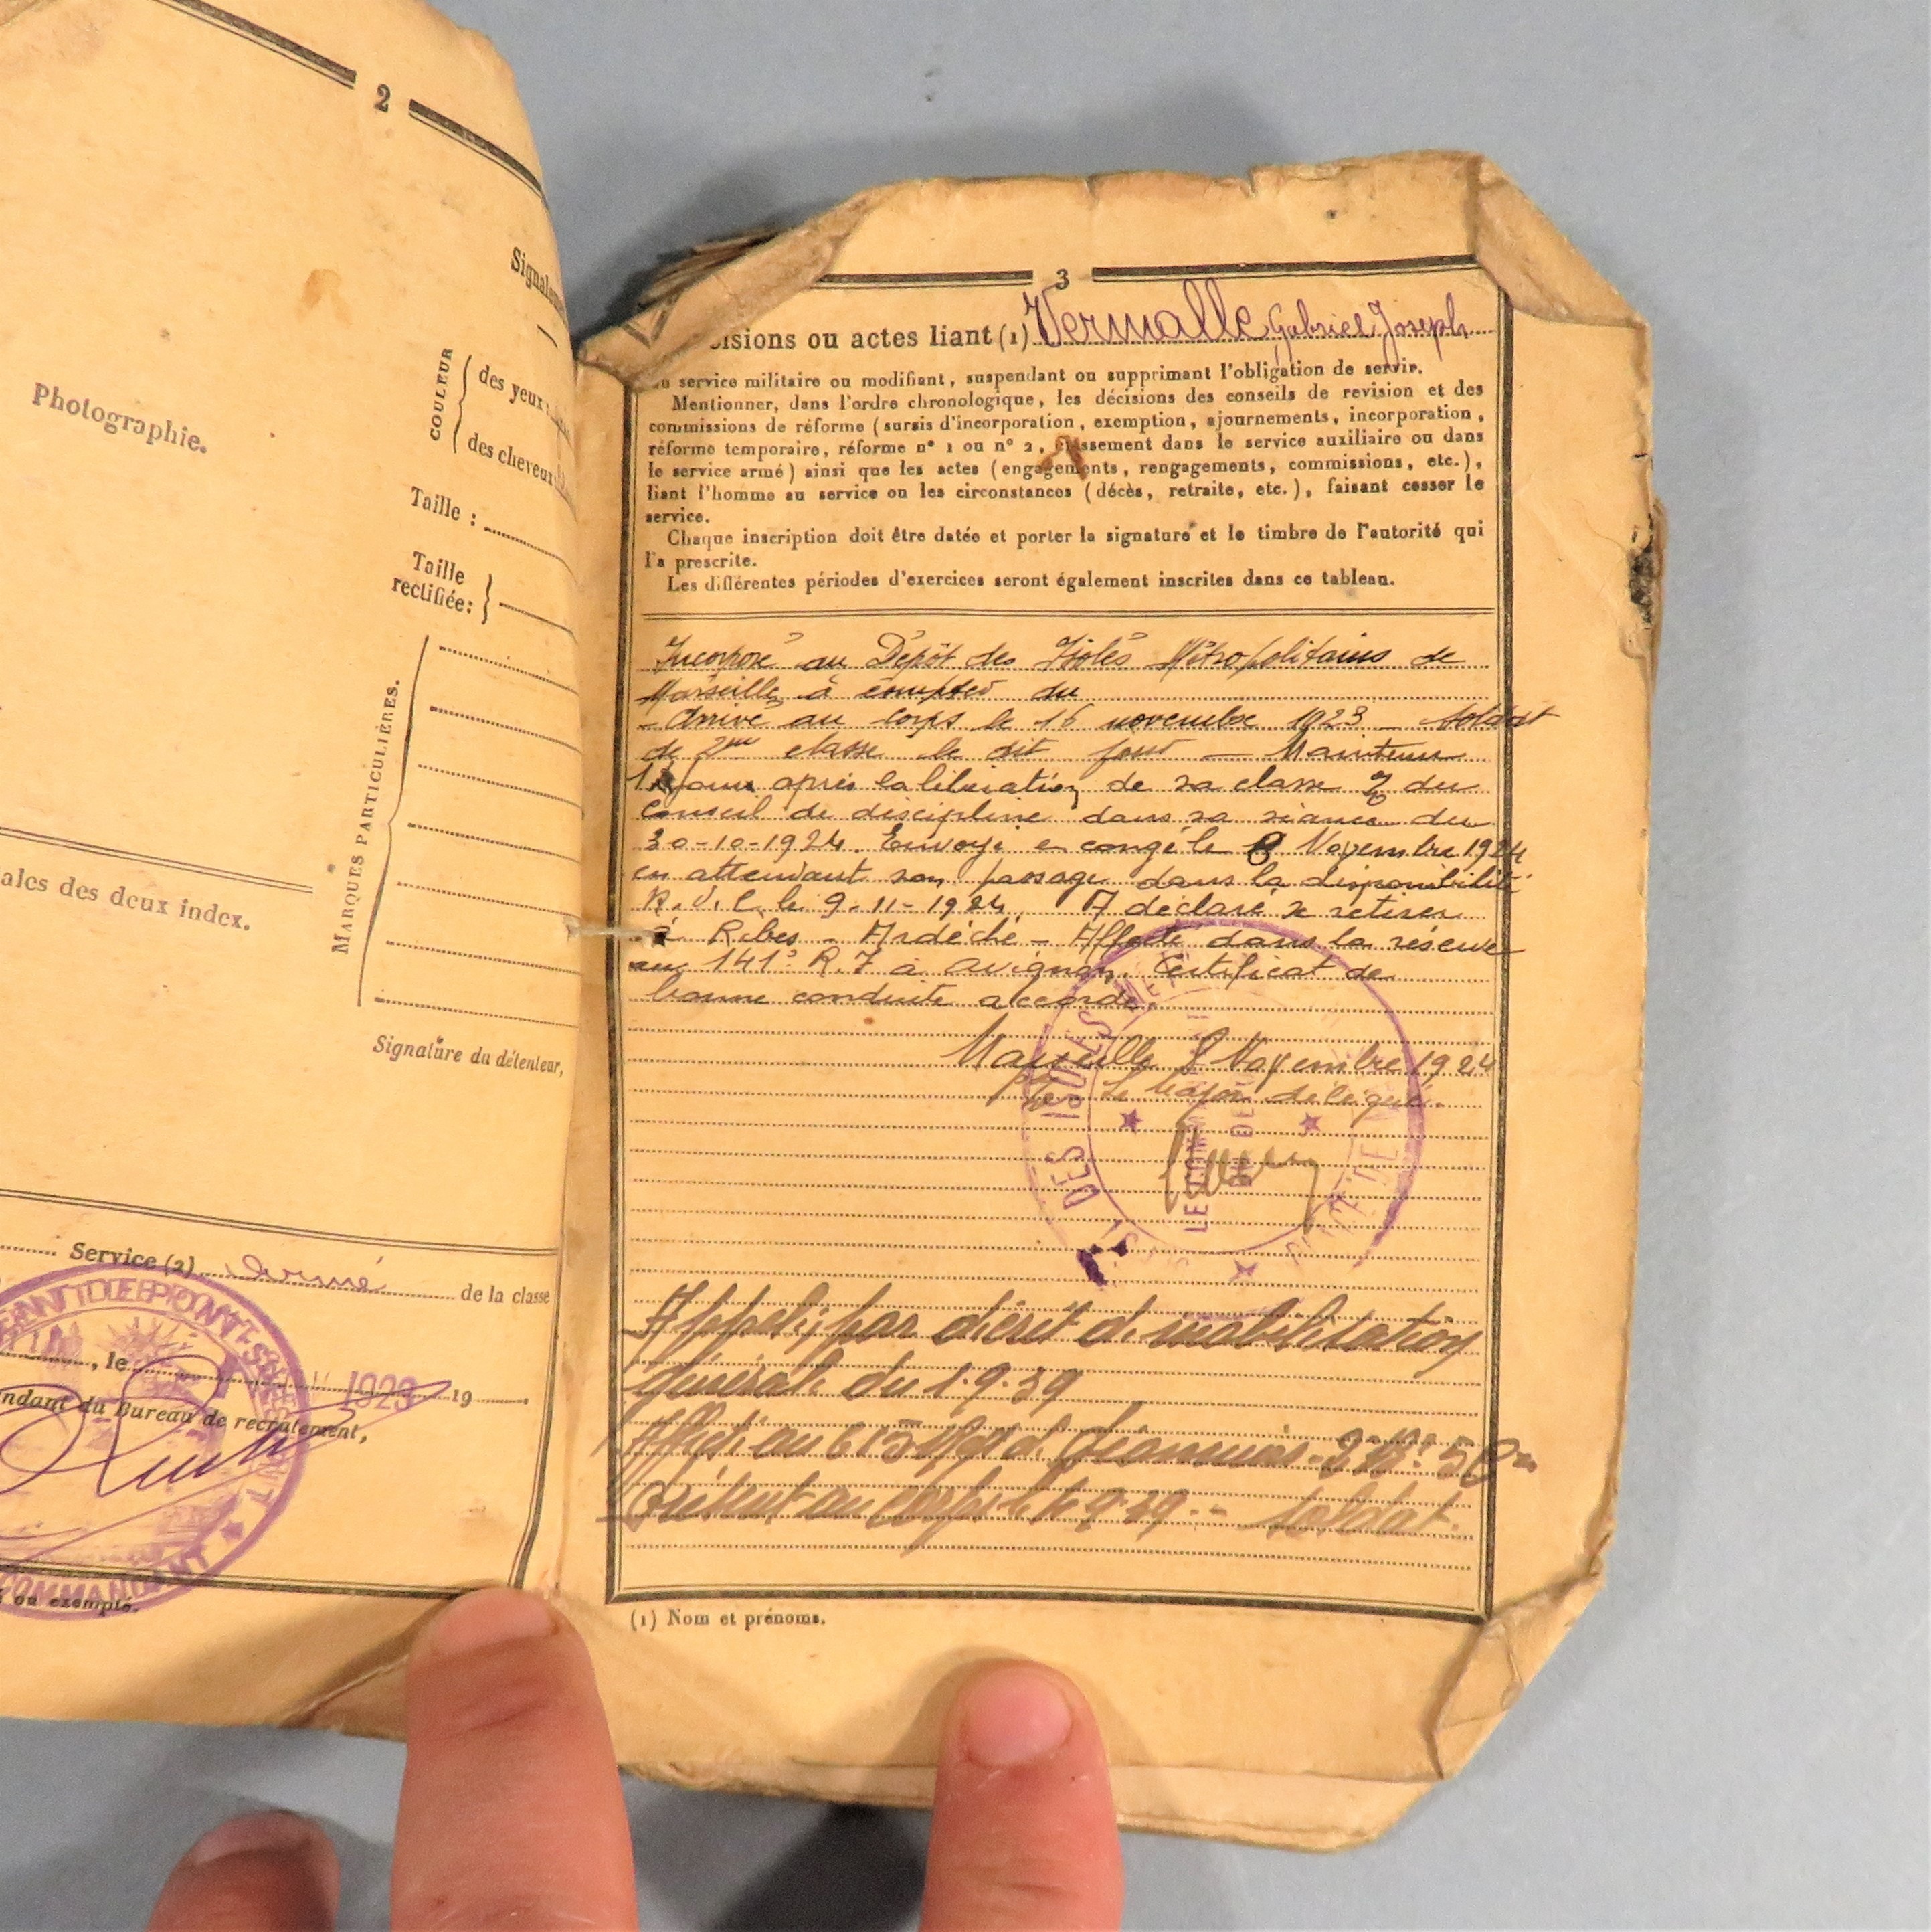 2
Photographie.
Signalem
COULEUR
des yeux :
des cheveux
Taille :
Taille
rectifiée :
MARQUES PARTICULIÈRES.
ales des deux index.
Signature du détenteur,
Service (2) armé de la classe
, le 1923 19
ndant du Bureau de recrutement,
COMMANDANT
ou exempté.
3
isions ou actes liant (1) Vermalle Gabriel Joseph
au service militaire ou modifiant, suspendant ou supprimant l'obligation de servir.
Mentionner, dans l'ordre chronologique, les décisions des conseils de revision et des
commissions de réforme (sursis d'incorporation, exemption, ajournements, incorporation,
réforme temporaire, réforme n° 1 ou n° 2, classement dans le service auxiliaire ou dans
le service armé) ainsi que les actes (engagements, rengagements, commissions, etc.),
liant l'homme au service ou les circonstances (décès, retraite, etc.), faisant cesser le
service.
Chaque inscription doit être datée et porter la signature et le timbre de l'autorité qui
l'a prescrite.
Les différentes périodes d'exercices seront également inscrites dans ce tableau.
Incorporé au Dépôt des Isolés Métropolitains de
Marseille à compter du
- Arrivé au corps le 16 novembre 1923 - Soldat
de 2me classe le dit jour - Maintenu
jours après la libération de sa classe du
Conseil de discipline dans sa séance du
30-10-1924. Envoyé en congé le 8 Novembre 1924
en attendant son passage dans la disponibilité
R.V.C. le 9-11-1924. A déclaré se retirer
à Ribes - Ardèche - Affecté dans la réserve
au 141e R.I à Avignon. Certificat de
bonne conduite accordé.
Marseille 8 Novembre 1924
Le Major délégué.
DES ISOLÉS
Appelé par décret de mobilisation
générale du 1.9.39
Affecté au
Présent au corps le 9.39. - soldat.
(1) Nom et prénoms.